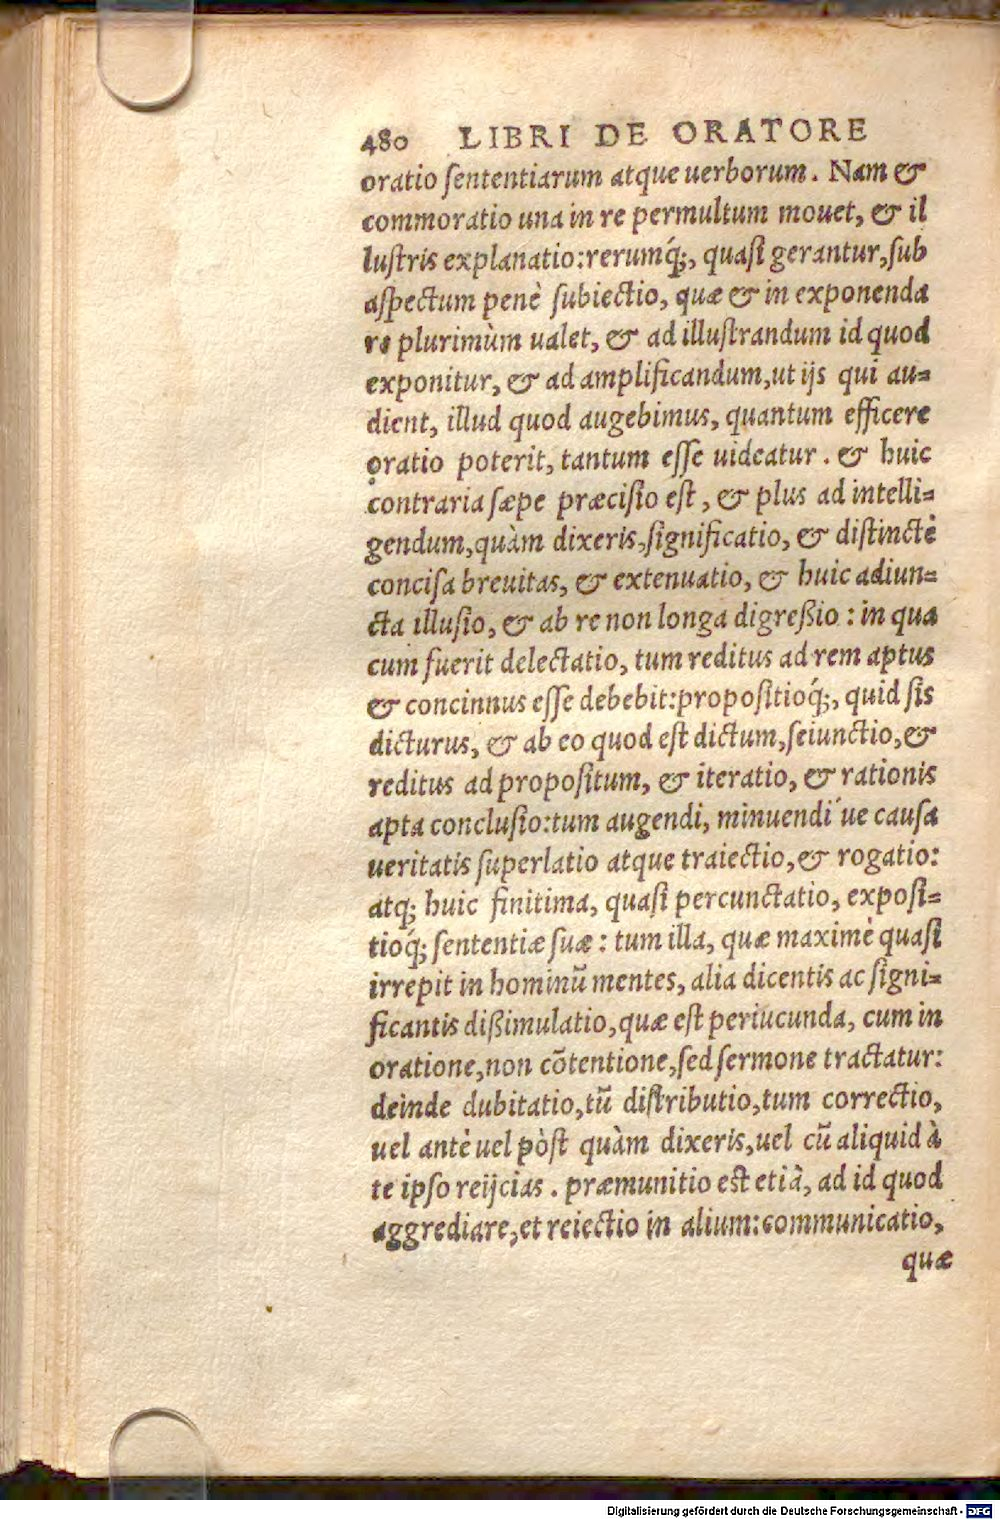 480 LIBRI DE ORATORE
oratio sententiarum atque uerborum. Nam &
commoratio una in re permultum mouet, & il
lustris explanatio:rerumq́;, quasi gerantur,sub
aspectum penè subiectio, quæ & in exponenda
re plurimùm ualet, & ad illustrandum id quod
exponitur, & ad amplificandum,ut ijs qui au=
dient, illud quod augebimus, quantum efficere
oratio poterit, tantum esse uideatur. & huic
contraria sæpe præcisio est, & plus ad intelli=
gendum,quàm dixeris,significatio, & distinctè
concisa breuitas, & extenuatio, & huic adiun=
cta illusio, & ab re non longa digreßio : in qua
cum fuerit delectatio, tum reditus ad rem aptus
& concinnus esse debebit:propositioq́;, quid sis
dicturus, & ab eo quod est dictum,seiunctio,&
reditus ad propositum, & iteratio, & rationis
apta conclusio:tum augendi, minuendi´ue causa
ueritatis superlatio atque traiectio,& rogatio:
atq; huic finitima, quasi percunctatio, exposi=
tioq́; sententiæ suæ : tum illa, quæ maximè quasi
irrepit in hominū mentes, alia dicentis ac signi=
ficantis dißimulatio,quæ est periucunda, cum in
oratione,non cōtentione,sed sermone tractatur:
deinde dubitatio,tū distributio,tum correctio,
uel antè uel pòst quàm dixeris,uel cū aliquid à
te ipso reijcias. præmunitio est etiā, ad id quod
aggrediare,et reiectio in alium:communicatio,
quæ
Digitalisierung gefördert durch die Deutsche Forschungsgemeinschaft - DFG